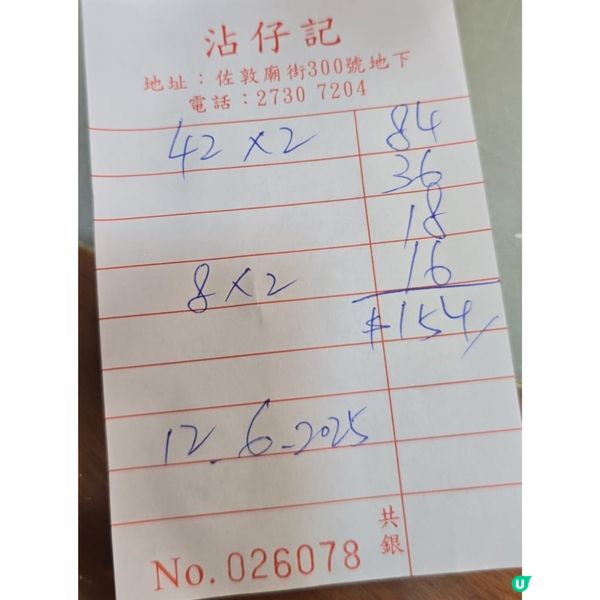 沾仔記
地址：佐敦廟街300號地下
電話：2730 7204
42 x 2 84
36
18
8 x 2 16
$154/
12.6-2025
共銀
No. 026078
U